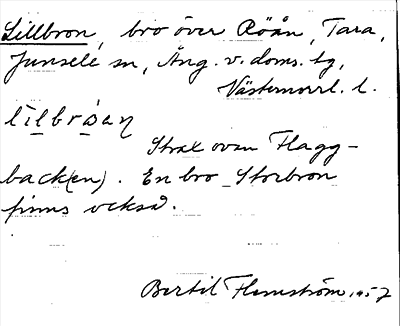 Lillbron, bro över Röån, Tara,
Junsele sn, Ång. v. doms. tg,
Västernorrl. l.
lilbroan
Strax ovan Flagg-
back(en). En bro Storbron
finns också.
Bertil Flemström 1957